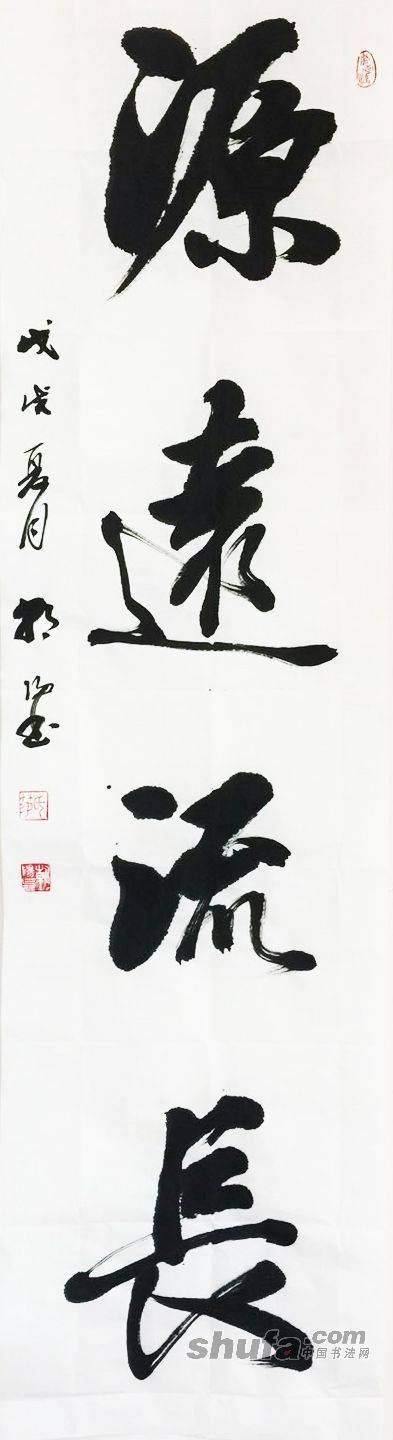 源遠流長
戊戌夏月
shufa.com
中国书法网